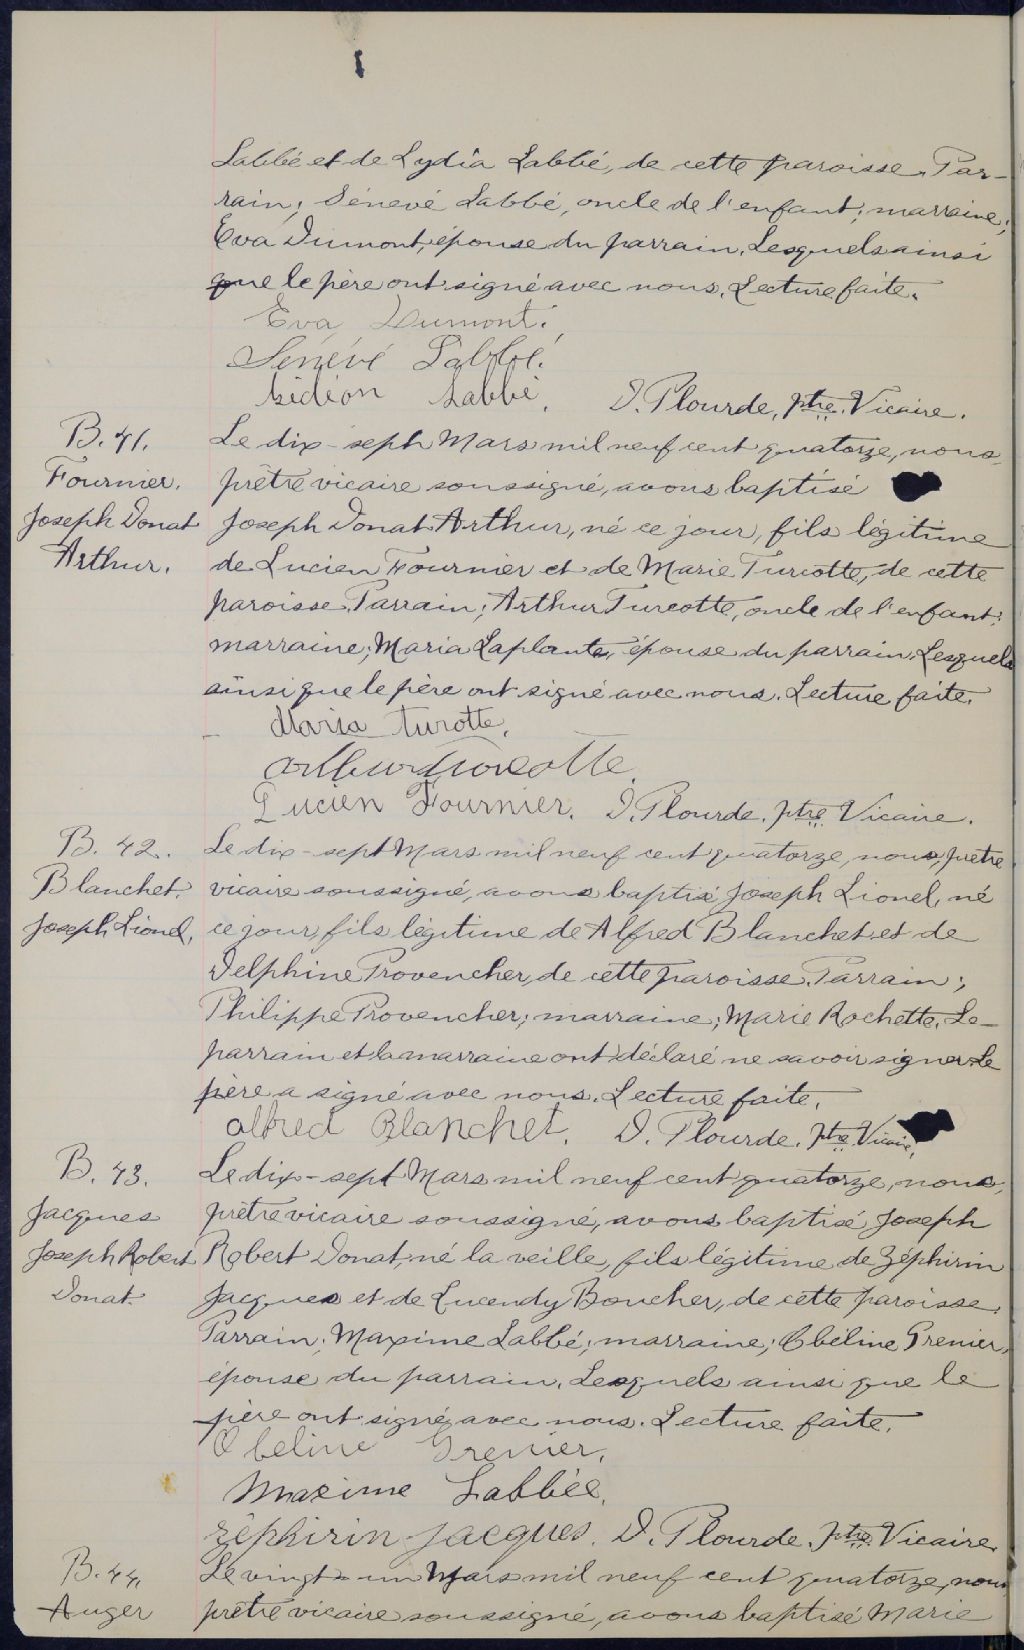 Labbé et de Lydia Labbé, de cette paroisse. Par-
rain; Sénevé Labbé, oncle de l'enfant; marraine;
Eva Dumont, épouse du parrain. Lesquels ainsi
que le père ont signé avec nous. Lecture faite.
Eva Dumont.
Sénévé Labbé.
Gédéon Labbé. D. Plourde, ptre. Vicaire.
B. 41.
Fournier.
Joseph Donat
Arthur.
Le dix-sept Mars mil neuf cent quatorze, nous,
prêtre vicaire soussigné, avons baptisé
Joseph Donat Arthur, né ce jour, fils légitime
de Lucien Fournier et de Marie Turcotte, de cette
paroisse. Parrain; Arthur Turcotte, oncle de l'enfant;
marraine; Maria Laplante, épouse du parrain. Lesquels
ainsi que le père ont signé avec nous. Lecture faite.
Maria Turotte.
Arthur Turcotte.
Lucien Fournier. D. Plourde. ptre Vicaire.
B. 42.
Blanchet.
Joseph Lionel.
Le dix-sept Mars mil neuf cent quatorze, nous, prêtre
vicaire soussigné, avons baptisé Joseph Lionel, né
ce jour, fils légitime de Alfred Blanchet et de
Delphine Provencher, de cette paroisse. Parrain;
Philippe Provencher; marraine; Marie Rochette. Le-
parrain et la marraine ont déclaré ne savoir signer. Le
père a signé avec nous. Lecture faite.
Alfred Blanchet. D. Plourde. ptre Vicaire.
B. 43.
Jacques
Joseph Robert
Donat.
Le dix-sept Mars mil neuf cent quatorze, nous,
prêtre vicaire soussigné, avons baptisé Joseph
Robert Donat, né la veille, fils légitime de Zéphirin
Jacques et de Lucendy Boucher, de cette paroisse.
Parrain; Maxime Labbé; marraine; Obéline Grenier,
épouse du parrain. Lesquels ainsi que le
père ont signé avec nous. Lecture faite.
Obeline Grenier.
Maxime Labbée.
Zéphirin Jacques. D. Plourde. Ptre. Vicaire.
B. 44.
Auger
Le vingt-un Mars mil neuf cent quatorze, nous
prêtre vicaire soussigné, avons baptisé Marie